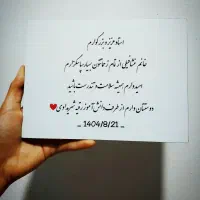 استاد عزیز و بزرگوارم
خانم نشاط‌علی از تمام زحماتتون بسیار سپاسگزارم
امیدوارم همیشه سلامت و تندرست باشید
دوستتان دارم از طرف دانش آموز رقیه شهیداوی❤
_ 1404/8/21 _